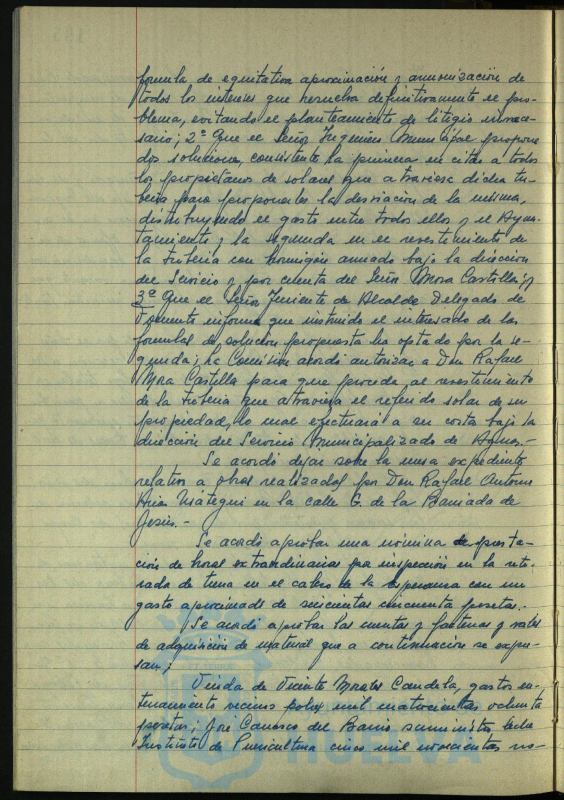 formula de equitativa aproximación y armonización de
todos los intereses que resuelva definitivamente el pro-
blema, evitando el planteamiento de litigio innece-
sario; 2º Que el Señor Ingeniero Municipal propone
dos soluciones, consistente la primera en citar a todos
los propietarios de solares que atraviesa dicha tu-
beria para proponerles la desviación de la misma,
distribuyendo el gasto entre todos ellos y el Ayun-
tamiento y la segunda en el revestimiento de
la tuberia con hormigón armado bajo la dirección
del Servicio y por cuenta del Señor Mora Castilla; y
3º Que el Señor Teniente de Alcalde Delegado de
Fomento informa que instruido el interesado de las
formulas de solución propuesta ha optado por la se-
gunda; la Comisión acordó autorizar a Don Rafael
Mora Castilla para que proceda al revestimiento
de la tuberia que atraviesa el referido solar de su
propiedad, lo cual efectuará a su costa bajo la
dirección del Servicio Municipalizado de Aguas.-
Se acordó dejar sobre la mesa expediente
relativo a obras realizadas por Don Rafael Antonio
en la calle G. de la Barriada de
Jesús.-
Se acordó aprobar una nómina de presta-
ción de horas extraordinarias por inspección en la reti-
rada de tierra en el cabezo de la Esperanza con un
gasto aproximado de seiscientas cincuenta pesetas.-
Se acordó aprobar las cuentas y facturas y vales
de adquisición de material que a continuación se expre-
san;
Viuda de Vicente Morales Candela, gastos en-
terramiento vecinos pobres mil cuatrocientas ochenta
pesetas; José Carrasco del Barrio suministro leche
Instituto de Puericultura cinco mil novecientas no-
HUELVA